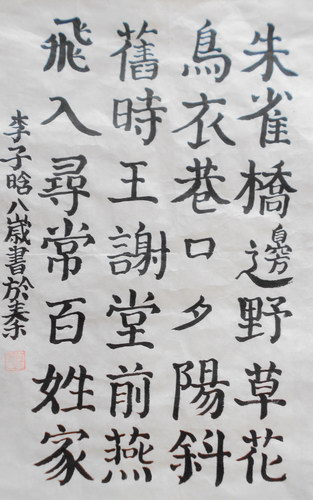 朱雀橋邊野草花
鳥衣巷口夕陽斜
舊時王謝堂前燕
飛入尋常百姓家
李子晗八歲書於